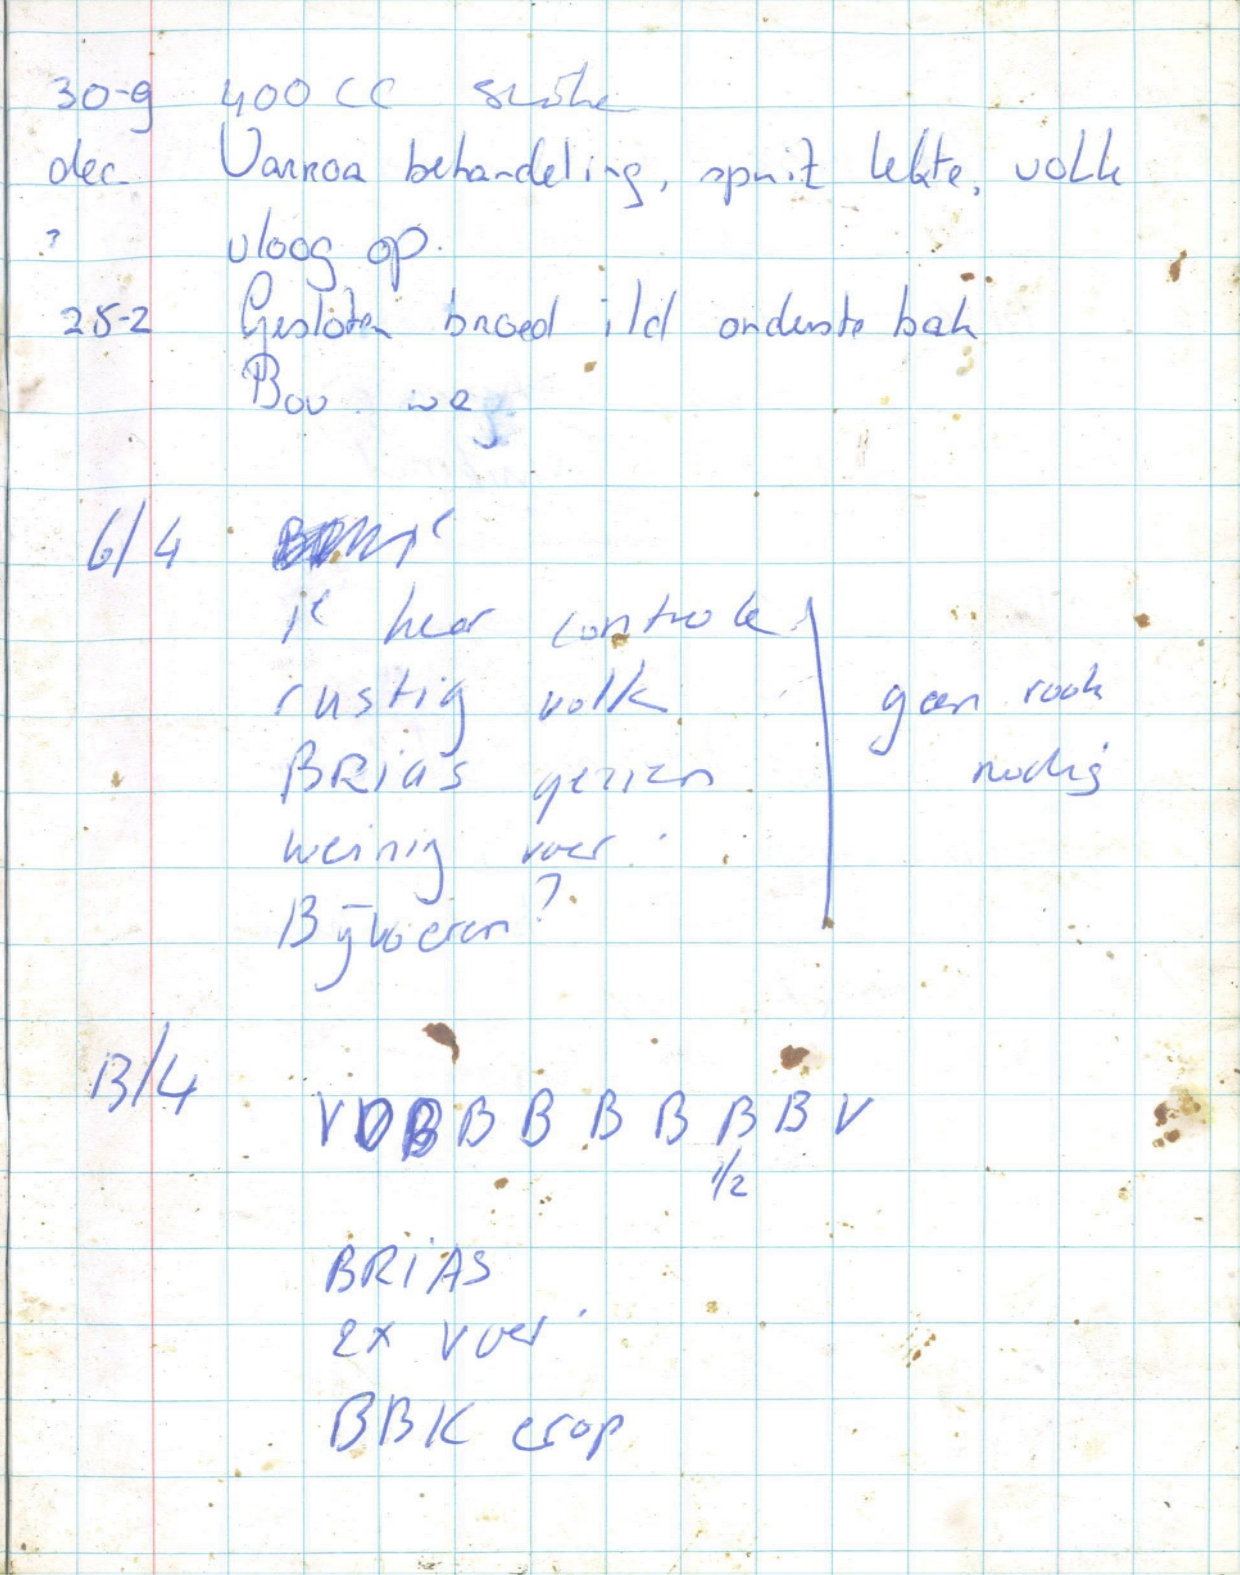 30-9 400 CC suiker
dec Varroa behandeling, spuit lekte, volk
? vloog op.
25-2 Gesloten broed i/d onderste bak
Bov. weg
6/4
1e keer controle
rustig volk geen rook
BRIAS gezien nodig
weinig voer
Bijvoeren?
13/4
V D B B B B B B B V
1/2
BRIAS
2x voer
BBK erop